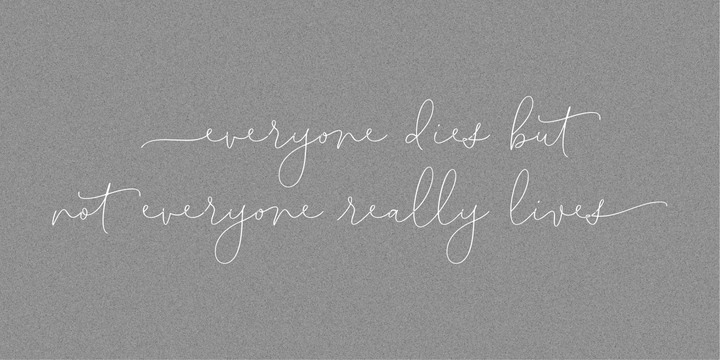 everyone dies but
not everyone really lives